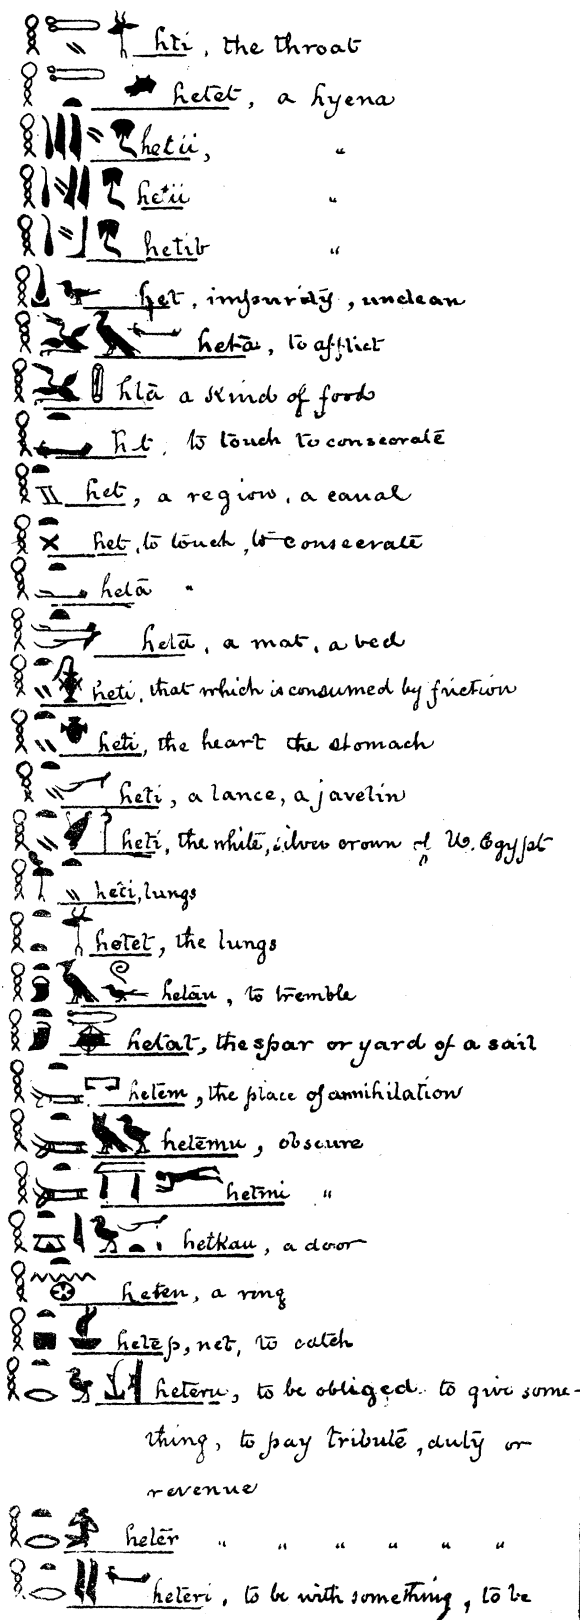 hti, the throat
hetet, a hyena
hetii, "
hetii "
hetib "
het, impurity, unclean
hetā, to afflict
htā a kind of food
ht, to touch to consecrate
het, a region, a canal
het, to touch, to consecrate
hetā "
hetā, a mat, a bed
heti, that which is consumed by friction
heti, the heart the stomach
heti, a lance, a javelin
heti, the white, silver crown of U. Egypt
heti, lungs
hetet, the lungs
hetau, to tremble
hetat, the spar or yard of a sail
hetem, the place of annihilation
hetemu, obscure
hetmi "
hetkau, a door
heten, a ring
hetep, net, to catch
heteru, to be obliged to give some-
thing, to pay tribute, duty or
revenue
heter " " " " " "
heteri, to be with something, to be